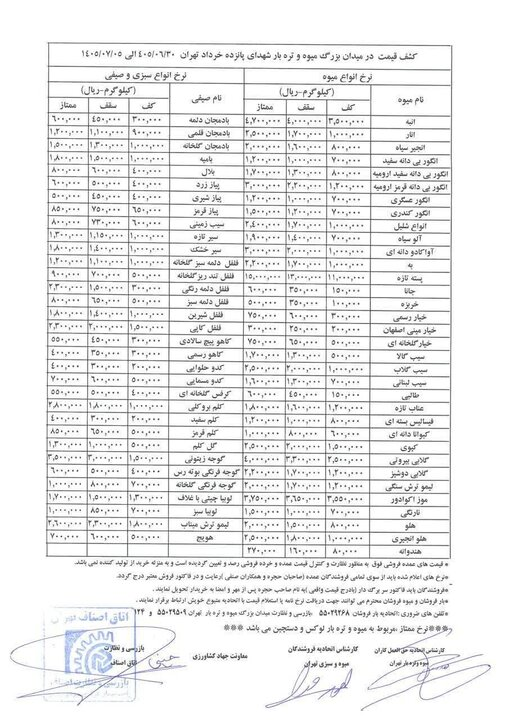 کشف قیمت در میدان بزرگ میوه و تره بار شهدای پانزده خرداد تهران ۴۰۵/۰۶/۳۰ الی ۱۴۰۵/۰۷/۰۵
نرخ انواع میوه نرخ انواع سبزی و صیفی
نام میوه (کیلوگرم-ریال) نام صیفی (کیلوگرم-ریال)
کف سقف ممتاز کف سقف ممتاز
انبه ۳,۵۰۰,۰۰۰ ۴,۰۰۰,۰۰۰ ۴,۷۰۰,۰۰۰ بادمجان دلمه ۳۰۰,۰۰۰ ۴۵۰,۰۰۰ ۶۰۰,۰۰۰
انار ۱,۰۰۰,۰۰۰ ۱,۷۰۰,۰۰۰ ۲,۵۰۰,۰۰۰ بادمجان قلمی ۹۰۰,۰۰۰ ۱,۱۰۰,۰۰۰ ۱,۲۰۰,۰۰۰
انجیر سیاه ۸۰۰,۰۰۰ ۱,۶۰۰,۰۰۰ ۲,۰۰۰,۰۰۰ بادمجان گلخانه ۱,۰۰۰,۰۰۰ ۱,۳۰۰,۰۰۰ ۱,۵۰۰,۰۰۰
انگور بی دانه سفید ۷۰۰,۰۰۰ ۱,۰۰۰,۰۰۰ ۱,۲۰۰,۰۰۰ بامیه ۱,۰۰۰,۰۰۰ ۱,۵۰۰,۰۰۰ ۱,۸۰۰,۰۰۰
انگور بی دانه سفید ارومیه ۸۰۰,۰۰۰ ۱,۳۰۰,۰۰۰ ۱,۷۰۰,۰۰۰ بلال ۴۰۰,۰۰۰ ۶۰۰,۰۰۰ ۸۰۰,۰۰۰
انگور بی دانه قرمز ارومیه ۱,۲۰۰,۰۰۰ ۲,۲۰۰,۰۰۰ ۳,۰۰۰,۰۰۰ پیاز زرد ۴۰۰,۰۰۰ ۵۰۰,۰۰۰ ۶۰۰,۰۰۰
انگور عسگری ۷۰۰,۰۰۰ ۱,۰۰۰,۰۰۰ ۱,۲۰۰,۰۰۰ پیاز شیری ۴۰۰,۰۰۰ ۴۵۰,۰۰۰ ۵۰۰,۰۰۰
انگور کندری ۷۰۰,۰۰۰ ۱,۲۰۰,۰۰۰ ۱,۵۰۰,۰۰۰ پیاز قرمز ۶۵۰,۰۰۰ ۷۵۰,۰۰۰ ۸۵۰,۰۰۰
انواع شلیل ۱,۰۰۰,۰۰۰ ۱,۷۰۰,۰۰۰ ۲,۴۰۰,۰۰۰ سیب زمینی ۶۰۰,۰۰۰ ۷۳۰,۰۰۰ ۸۰۰,۰۰۰
آلو سیاه ۷۰۰,۰۰۰ ۱,۴۰۰,۰۰۰ ۱,۹۰۰,۰۰۰ سیر تازه ۱,۰۰۰,۰۰۰ ۱,۱۵۰,۰۰۰ ۱,۳۰۰,۰۰۰
آواکادو دانه ای ۱,۰۰۰,۰۰۰ ۲,۰۰۰,۰۰۰ ۳,۰۰۰,۰۰۰ سیر خشک ۱,۰۰۰,۰۰۰ ۱,۴۰۰,۰۰۰ ۱,۸۰۰,۰۰۰
به ۱,۰۰۰,۰۰۰ ۱,۷۰۰,۰۰۰ ۲,۲۰۰,۰۰۰ فلفل دلمه سبز گلخانه ۴۰۰,۰۰۰ ۶۰۰,۰۰۰ ۷۰۰,۰۰۰
پسته تازه ۱,۰۰۰,۰۰۰ ۱۳,۰۰۰,۰۰۰ ۱۵,۰۰۰,۰۰۰ فلفل تند ریزگلخانه ۵۰۰,۰۰۰ ۷۰۰,۰۰۰ ۹۰۰,۰۰۰
جانا ۱۵۰,۰۰۰ ۳۵۰,۰۰۰ ۶۰۰,۰۰۰ فلفل دلمه رنگی ۱,۳۰۰,۰۰۰ ۲,۳۰۰,۰۰۰
خربزه ۳۵۰,۰۰۰ ۵۰۰,۰۰۰ ۶۵۰,۰۰۰ فلفل دلمه سبز ۵۰۰,۰۰۰ ۶۵۰,۰۰۰ ۸۰۰,۰۰۰
خیار رسمی ۳۰۰,۰۰۰ ۶۰۰,۰۰۰ ۸۰۰,۰۰۰ فلفل شیرین ۱,۰۰۰,۰۰۰ ۱,۴۰۰,۰۰۰ ۱,۸۰۰,۰۰۰
خیار مینی اصفهان ۲۰۰,۰۰۰ ۲۵۰,۰۰۰ ۳۰۰,۰۰۰ فلفل کاپی ۱,۵۰۰,۰۰۰ ۲,۰۰۰,۰۰۰ ۲,۳۰۰,۰۰۰
خیار گلخانه ای ۵۰۰,۰۰۰ ۶۵۰,۰۰۰ ۷۵۰,۰۰۰ کاهو پیچ سالادی ۳۰۰,۰۰۰ ۴۵۰,۰۰۰ ۵۵۰,۰۰۰
سیب گالا ۵۰۰,۰۰۰ ۱,۳۰۰,۰۰۰ ۱,۷۰۰,۰۰۰ کاهو رسمی ۳۰۰,۰۰۰ ۳۵۰,۰۰۰ ۴۰۰,۰۰۰
سیب گلاب ۱,۰۰۰,۰۰۰ ۲,۰۰۰,۰۰۰ ۲,۵۰۰,۰۰۰ کدو حلوایی ۲۰۰,۰۰۰ ۳۰۰,۰۰۰ ۳۵۰,۰۰۰
سیب لبنانی ۷۰۰,۰۰۰ ۱,۳۰۰,۰۰۰ ۱,۶۰۰,۰۰۰ کدو مسمایی ۵۰۰,۰۰۰ ۶۰۰,۰۰۰ ۷۰۰,۰۰۰
طالبی ۱۵۰,۰۰۰ ۴۵۰,۰۰۰ ۶۰۰,۰۰۰ کرفس گلخانه ای ۴۰۰,۰۰۰ ۵۰۰,۰۰۰ ۵۵۰,۰۰۰
عناب تازه ۱,۲۰۰,۰۰۰ ۱,۶۰۰,۰۰۰ ۱,۸۰۰,۰۰۰ کلم بروکلی ۱,۰۰۰,۰۰۰ ۱,۸۰۰,۰۰۰ ۲,۸۰۰,۰۰۰
فیسالیس بسته ای ۸۰۰,۰۰۰ ۱,۰۰۰,۰۰۰ ۱,۲۰۰,۰۰۰ کلم سفید ۲۰۰,۰۰۰ ۳۰۰,۰۰۰ ۴۰۰,۰۰۰
کیوانا دانه ای ۶۰۰,۰۰۰ ۸۰۰,۰۰۰ ۱,۰۰۰,۰۰۰ کلم قرمز ۵۰۰,۰۰۰ ۶۵۰,۰۰۰ ۸۵۰,۰۰۰
کیوی ۱,۵۰۰,۰۰۰ ۲,۰۰۰,۰۰۰ ۲,۵۰۰,۰۰۰ گل کلم ۵۰۰,۰۰۰ ۱,۰۰۰,۰۰۰ ۱,۳۰۰,۰۰۰
گلابی بیروتی ۲,۰۰۰,۰۰۰ ۳,۳۰۰,۰۰۰ ۴,۰۰۰,۰۰۰ گوجه زیتونی ۱,۵۰۰,۰۰۰ ۳,۰۰۰,۰۰۰ ۳,۵۰۰,۰۰۰
گلابی دوشیز ۱,۲۰۰,۰۰۰ ۱,۷۰۰,۰۰۰ ۲,۲۰۰,۰۰۰ گوجه فرنگی بوته رس ۴۰۰,۰۰۰ ۵۰۰,۰۰۰ ۶۰۰,۰۰۰
لیمو ترش سنگی ۱,۲۰۰,۰۰۰ ۱,۷۰۰,۰۰۰ ۲,۰۰۰,۰۰۰ گوجه فرنگی گلخانه ۷۰۰,۰۰۰ ۸۰۰,۰۰۰ ۱,۰۰۰,۰۰۰
موز اکوادور ۳,۵۵۰,۰۰۰ ۳,۶۵۰,۰۰۰ ۳,۷۵۰,۰۰۰ لوبیا چیتی با غلاف ۱,۳۰۰,۰۰۰ ۱,۵۰۰,۰۰۰ ۱,۷۰۰,۰۰۰
نارنگی ۷۰۰,۰۰۰ ۱,۲۰۰,۰۰۰ ۱,۵۰۰,۰۰۰ لوبیا سبز ۷۰۰,۰۰۰ ۸۵۰,۰۰۰ ۱,۰۰۰,۰۰۰
هلو ۸۰۰,۰۰۰ ۲,۰۰۰,۰۰۰ ۲,۵۰۰,۰۰۰ لیمو ترش میناب ۱,۸۰۰,۰۰۰ ۲,۳۰۰,۰۰۰ ۲,۶۰۰,۰۰۰
هلو انجیری ۱,۰۰۰,۰۰۰ ۲,۰۰۰,۰۰۰ ۲,۵۰۰,۰۰۰ هویج ۵۰۰,۰۰۰ ۶۰۰,۰۰۰ ۷۰۰,۰۰۰
هندوانه ۸۰,۰۰۰ ۱۶۰,۰۰۰ ۲۷۰,۰۰۰
* قیمت های عمده فروشی فوق به منظور نظارت و کنترل قیمت عمده و خرده فروشی رصد و تعیین گردیده است و به منزله خرید از تولید کننده نمی باشد.
*نرخ های اعلام شده باید از سوی تمامی فروشندگان عمده (صاحبان حجره و همکاران صنفی) رعایت و در فاکتور فروش معتبر درج گردد.
*فروشندگان باید فاکتور سربرگ دار (بادرج قیمت واقعی) به نام صاحب حجره پس از مهر و امضا به خریدار تحویل نمایند.
*بار فروشان و میوه فروشان محترم می توانند جهت دریافت نرخ نامه یا استعلام قیمت با اتحادیه متبوع خویش ارتباط برقرار نمایند.
*تلفن های ضروری: اتحادیه بار فروشان ۵۵۰۲۹۲۶۸ -بازرسی و نظارت میدان بزرگ میوه و تره بار تهران ۵۵۰۲۹۵۰۹ و ۱۲۴
***نرخ ممتاز ,مربوط به میوه و تره بار لوکس و دستچین می باشد ***
کارشناس اتحادیه حق العمل کاران کارشناس اتحادیه فروشندگان معاونت جهاد کشاورزی بازرسی و نظارت
میوه و تره بار تهران میوه و سبزی تهران اتاق اصناف
اتاق اصناف
بازرسی و نظارت اصناف